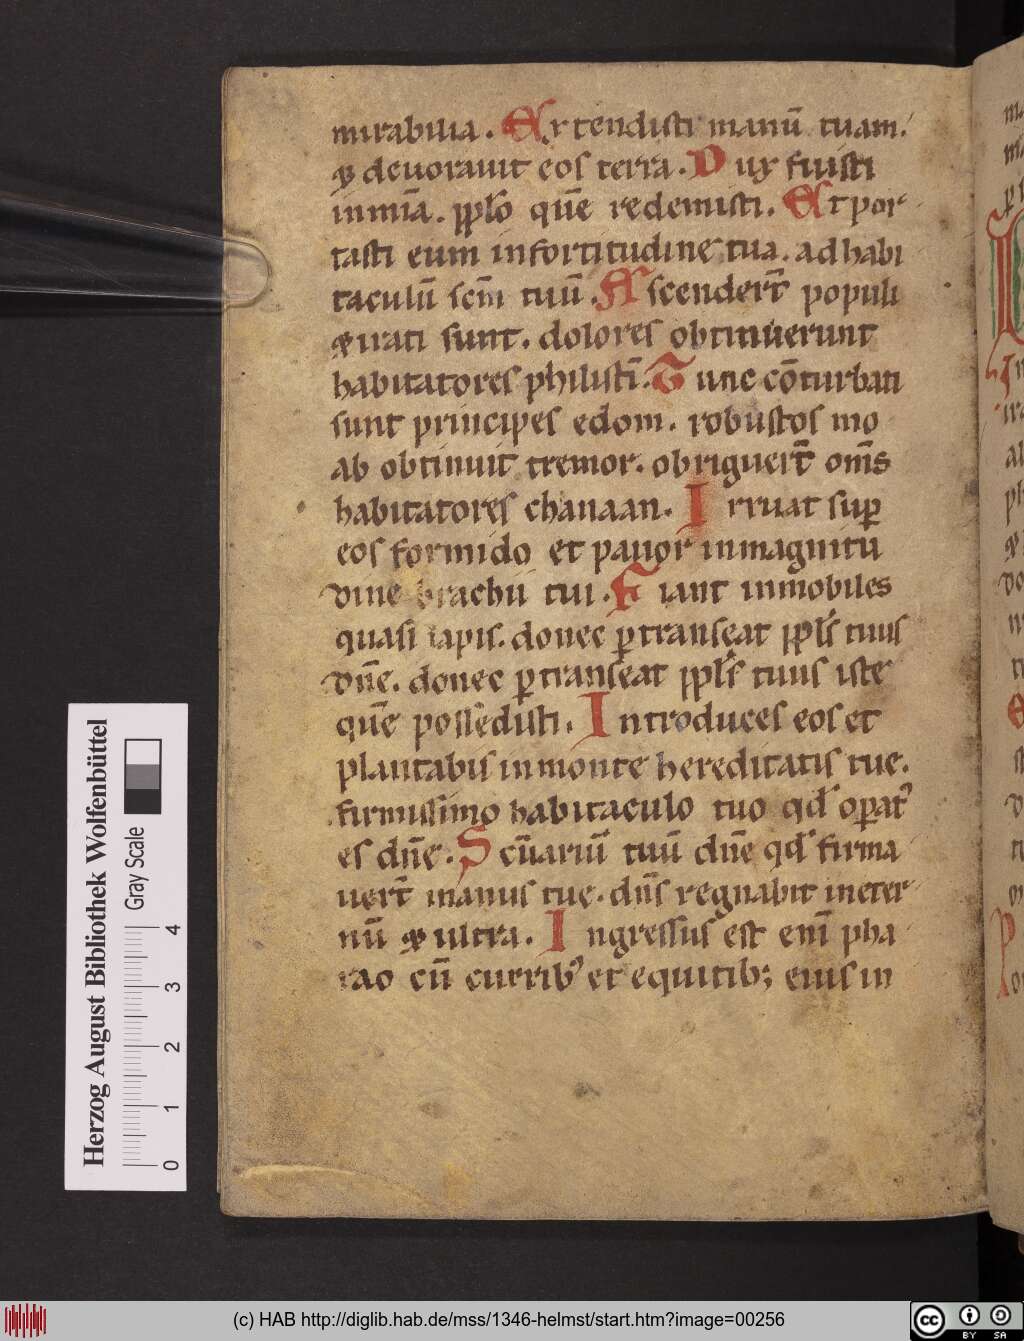 mirabilia. Extendisti manū tuam.
⁊ devoravit eos terra. Dux fuisti
in mīa. pplō quē redemisti. Et por
tasti eum in fortitudine tua. ad habi
taculū scm̄ tuū. Ascenderт̄ populi
⁊ irati sunt. dolores obtinuerunt
habitatores philistī. Tunc cōturbati
sunt principes edom. robustos mo
ab obtinuit tremor. obriguert̄ om̄s
habitatores chanaan. Irruat suꝑ
eos formido et pavor in magnitu
dine brachii tui. Fiant inmobiles
quasi lapis. donec ꝑtranseat ppl's tuus
dn̄e. donec ꝑtranseat ppl's tuus iste
quē possedisti. Introduces eos et
plantabis in monte hereditatis tue.
firmissimo habitaculo tuo qd̄ oꝑat᾽
es dn̄e. Scūariū tuū dn̄e qd̄ firma
uert̄ manus tue. dn̄s regnabit in eter
nū ⁊ ultra. Ingressus est enī pha
rao cū currib᾽ et equitib; eius in
Herzog August Bibliothek Wolfenbüttel
Gray Scale
0 1 2 3 4
(c) HAB http://diglib.hab.de/mss/1346-helmst/start.htm?image=00256
cc BY SA